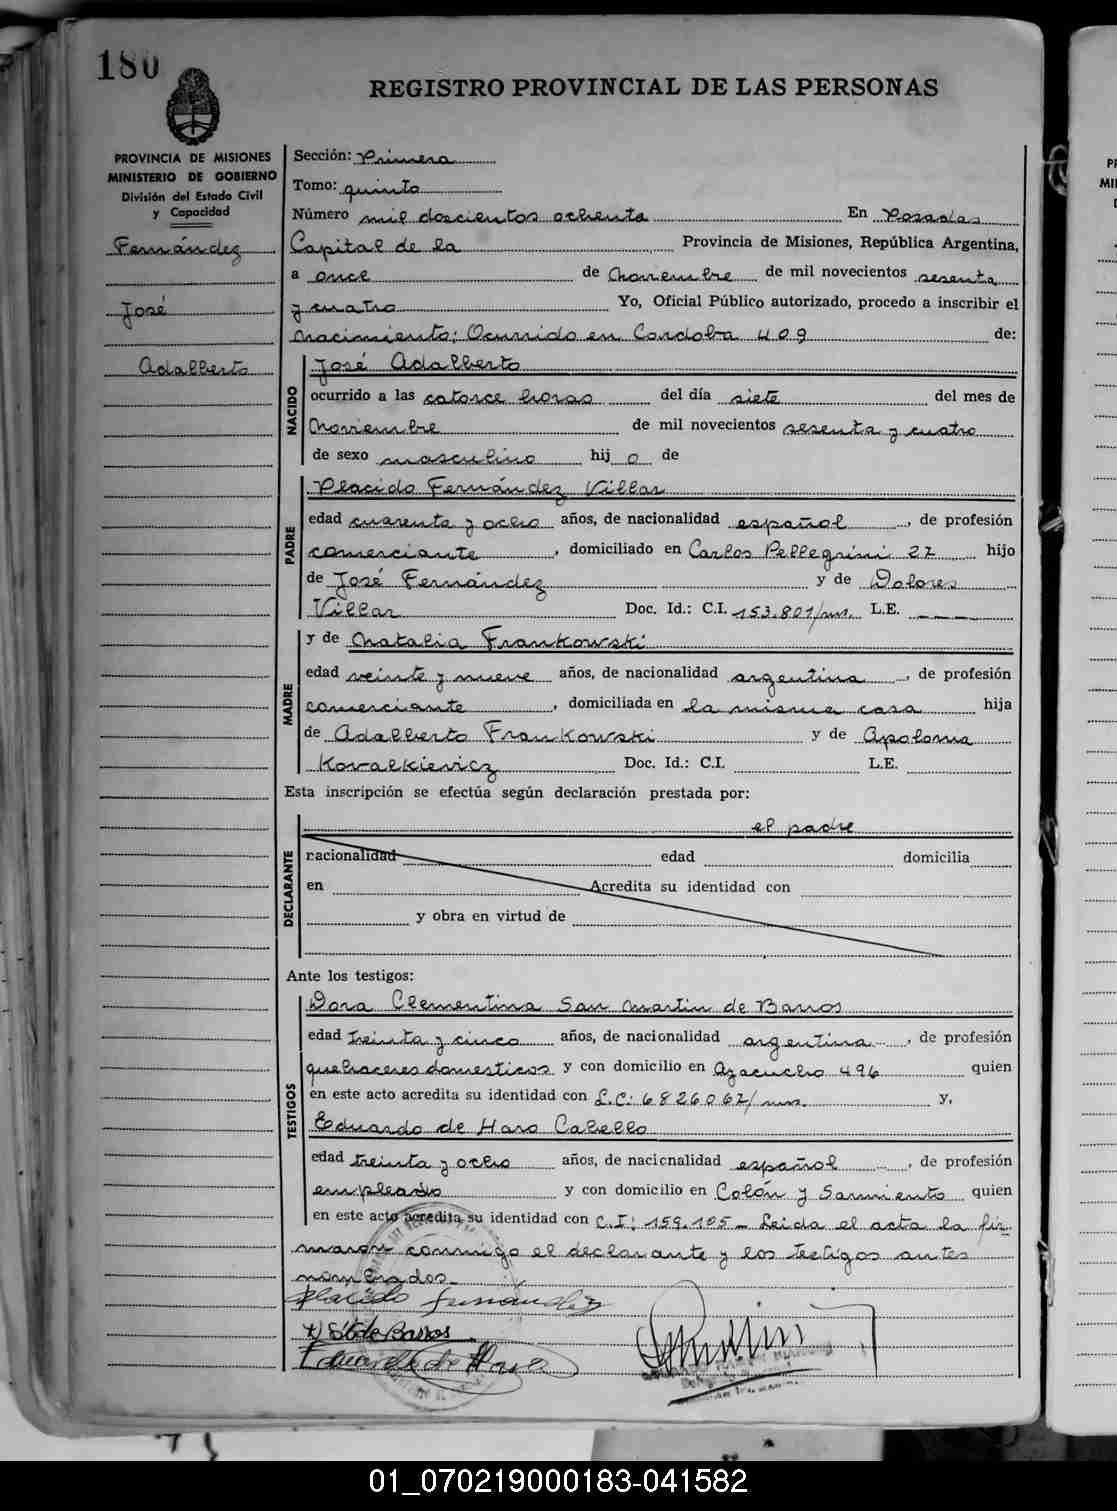 180
REGISTRO PROVINCIAL DE LAS PERSONAS
PROVINCIA DE MISIONES
MINISTERIO DE GOBIERNO
División del Estado Civil
y Capacidad
Fernández
José
Adalberto
Sección: Primera
Tomo: quinto
Número mil doscientos ochenta En Posadas
Capital de la Provincia de Misiones, República Argentina,
a once de Noviembre de mil novecientos sesenta
y cuatro Yo, Oficial Público autorizado, procedo a inscribir el
Nacimiento: Ocurrido en Cordoba 409 de:
NACIDO
José Adalberto
ocurrido a las catorce horas del día siete del mes de
Noviembre de mil novecientos sesenta y cuatro
de sexo masculino hijo de
PADRE
Placido Fernández Villar
edad cuarenta y ocho años, de nacionalidad español, de profesión
comerciante, domiciliado en Carlos Pellegrini 27 hijo
de José Fernández y de Dolores
Villar Doc. Id.: C.I. 153.801/ms. L.E. ----
MADRE
y de Natalia Frankowski
edad veinte y nueve años, de nacionalidad argentina, de profesión
comerciante, domiciliada en la misma casa hija
de Adalberto Frankowski y de Apolonia
Kovalkievicz Doc. Id.: C.I. L.E.
Esta inscripción se efectúa según declaración prestada por:
DECLARANTE
el padre
nacionalidad edad domicilia
en Acredita su identidad con
y obra en virtud de
Ante los testigos:
TESTIGOS
Dora Clementina San Martin de Barros
edad treinta y cinco años, de nacionalidad argentina, de profesión
quehaceres domesticos y con domicilio en Azacucho 496 quien
en este acto acredita su identidad con L.C: 6826067/ms. y,
Eduardo de Haro Cabello
edad treinta y ocho años, de nacionalidad español, de profesión
empleado y con domicilio en Colón y Sarmiento quien
en este acto acredita su identidad con C.I: 159.105_ Leida el acta la fir-
maron conmigo el declarante y los testigos antes
nombrados_
Placido Fernández
de Barros
Eduardo de Haro
01_070219000183-041582